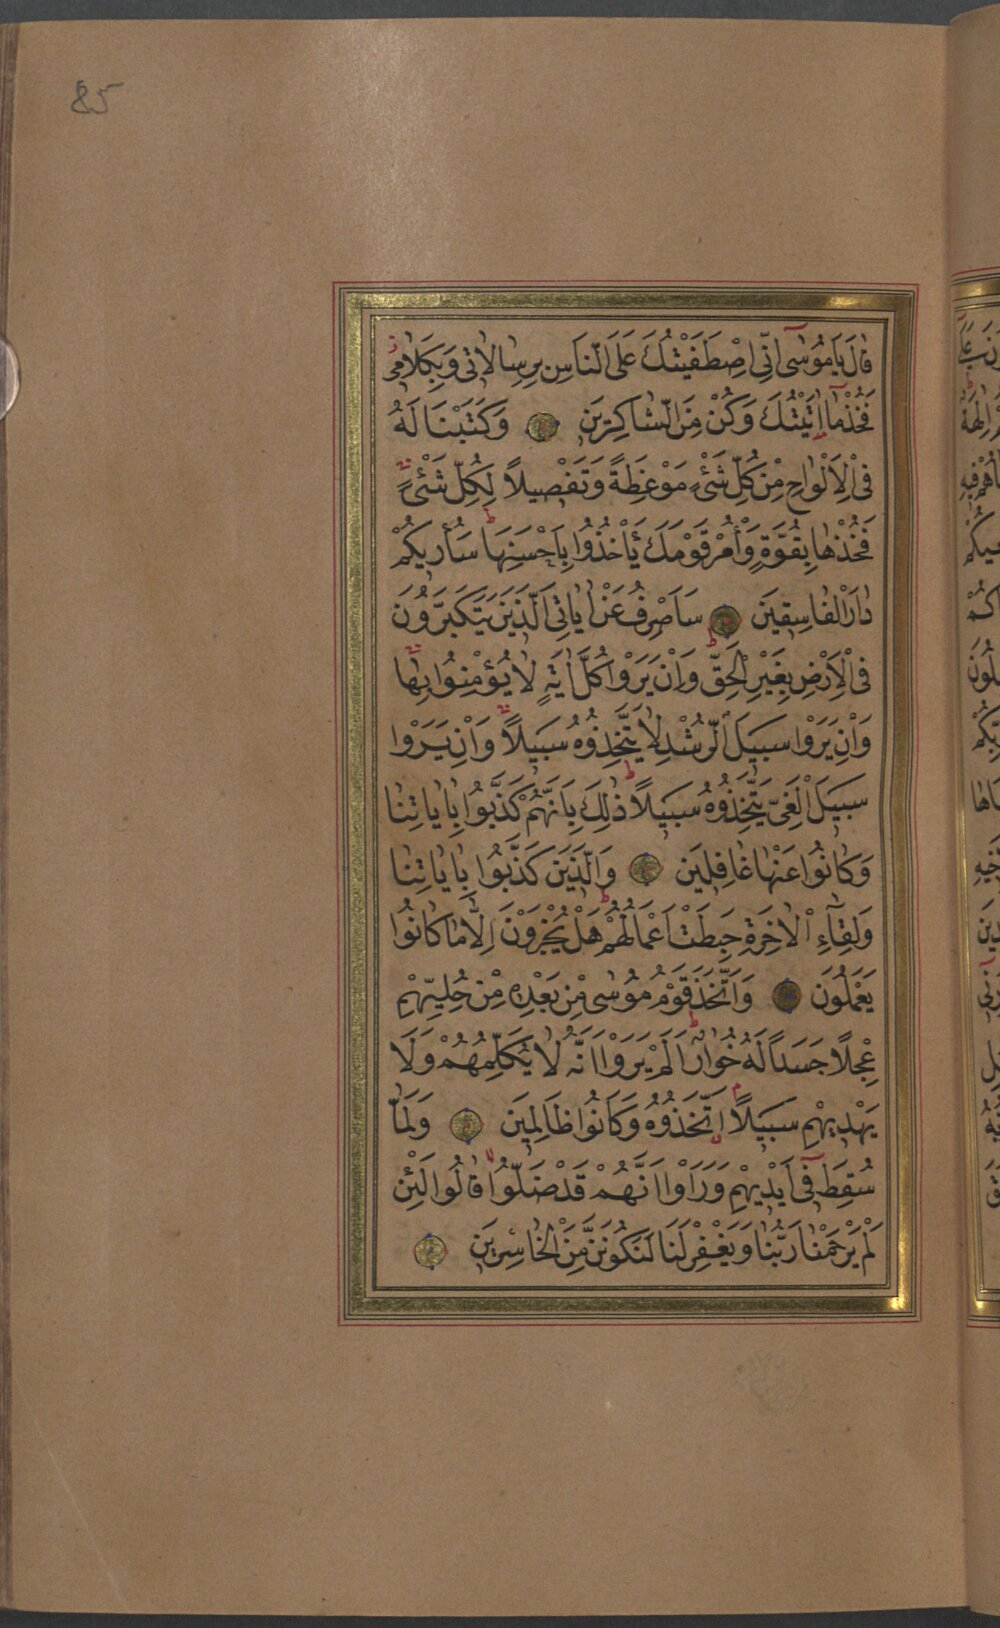 85
قَالَ يَا مُوسٰٓى اِنِّى اصْطَفَيْتُكَ عَلَى النَّاسِ بِرِسَالَاتِى وَبِكَلَامِى
فَخُذْ مَٓا اٰتَيْتُكَ وَكُنْ مِنَ الشَّاكِرِينَ وَكَتَبْنَا لَهُ
فِى الْاَلْوَاحِ مِنْ كُلِّ شَىْءٍ مَوْعِظَةً وَتَفْصِيلًا لِكُلِّ شَىْءٍ
فَخُذْهَا بِقُوَّةٍ وَأْمُرْ قَوْمَكَ يَأْخُذُوا بِاَحْسَنِهَا سَاُرِيكُمْ
دَارَ الْفَاسِقِينَ سَاَصْرِفُ عَنْ اٰيَاتِىَ الَّذِينَ يَتَكَبَّرُونَ
فِى الْاَرْضِ بِغَيْرِ الْحَقِّ وَاِنْ يَرَوْا كُلَّ اٰيَةٍ لَا يُؤْمِنُوا بِهَا
وَاِنْ يَرَوْا سَبِيلَ الرُّشْدِ لَا يَتَّخِذُوهُ سَبِيلًا وَاِنْ يَرَوْا
سَبِيلَ الْغَىِّ يَتَّخِذُوهُ سَبِيلًا ذٰلِكَ بِاَنَّهُمْ كَذَّبُوا بِاٰيَاتِنَا
وَكَانُوا عَنْهَا غَافِلِينَ وَالَّذِينَ كَذَّبُوا بِاٰيَاتِنَا
وَلِقَٓاءِ الْاٰخِرَةِ حَبِطَتْ اَعْمَالُهُمْ هَلْ يُجْزَوْنَ اِلَّا مَا كَانُوا
يَعْمَلُونَ وَاتَّخَذَ قَوْمُ مُوسٰى مِنْ بَعْدِهِ مِنْ حُلِيِّهِمْ
عِجْلًا جَسَدًا لَهُ خُوَارٌ اَلَمْ يَرَوْا اَنَّهُ لَا يُكَلِّمُهُمْ وَلَا
يَهْدِيهِمْ سَبِيلًا اِتَّخَذُوهُ وَكَانُوا ظَالِمِينَ وَلَمَّا
سُقِطَ فِٓى اَيْدِيهِمْ وَرَاَوْا اَنَّهُمْ قَدْ ضَلُّوا قَالُوا لَئِنْ
لَمْ يَرْحَمْنَا رَبُّنَا وَيَغْفِرْ لَنَا لَنَكُونَنَّ مِنَ الْخَاسِرِينَ